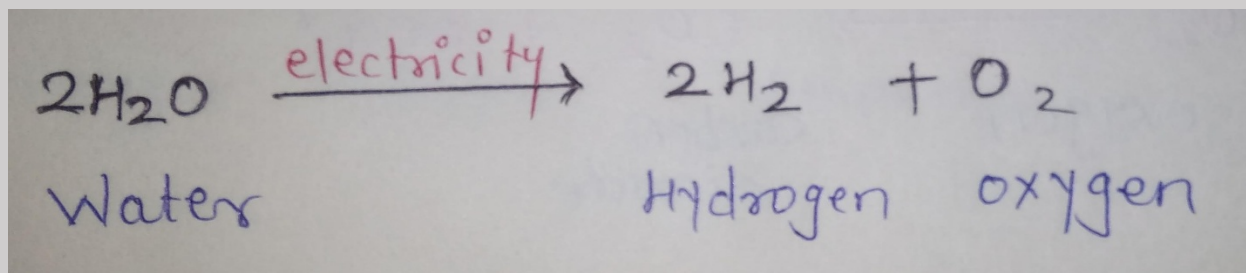 2H₂O electricity → 2H₂ + O₂
Water Hydrogen oxygen